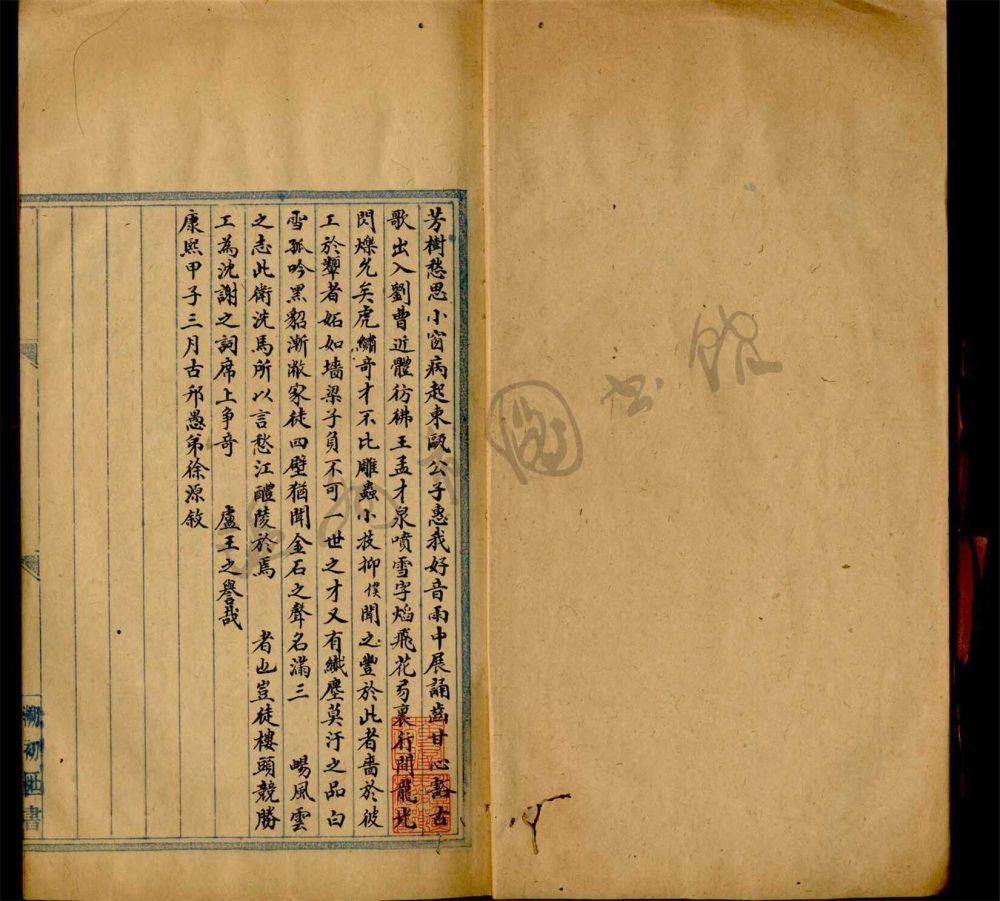 芳樹愁思小窗病起東甌公子惠我好音雨中展誦齒甘心豁古
歌出入劉曹近體彷彿王孟才泉噴雪字焰飛花芴裏行間龍光
閃爍允矣虎繡奇才不比雕蟲小技抑僕聞之豐於此者嗇於彼
工於顰者妬如墻梁子負不可一世之才又有纖塵莫汙之品白
雪孤吟黑貂漸敝家徒四壁猶聞金石之聲名滿三 暢風雲
之志此衛洗馬所以言愁江醴陵於焉 者也豈徒樓頭競勝
工為沈謝之詞席上爭奇 盧王之譽哉
康熙甲子三月古邗愚弟徐源敘
初
書
圖書館